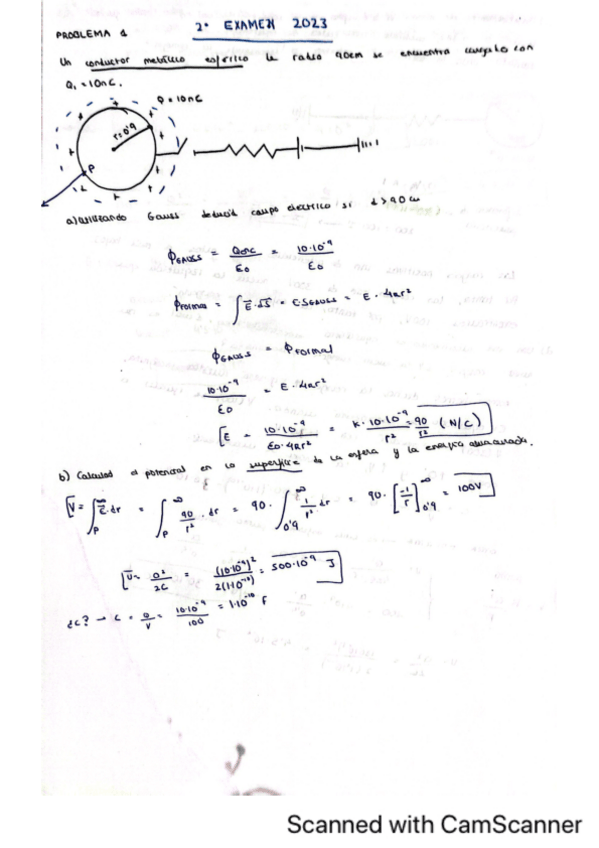 2º EXAMEN 2023
PROBLEMA 1
Un conductor metálico esférico de radio 90cm se encuentra cargado con
Q₁ = 10nC.
Q = 10nC
r=0'9
P
a) utilizando Gauss deducid campo eléctrico si d>90 cm
ΦGAUSS = Qenc/ε0 = 10·10⁻⁹/ε0
Φformal = ∫E·dS = E·SGAUSS = E·4πr²
ΦGAUSS = Φformal
10·10⁻⁹/ε0 = E·4πr²
E = 10·10⁻⁹/ε0·4πr² = K·10·10⁻⁹/r² = 90/r² (N/C)
b) Calculad el potencial en la superficie de la esfera y la energía almacenada.
V = ∫P∞ E·dr = ∫P∞ 90/r²·dr = 90·∫0'9∞ 1/r² dr = 90·[-1/r]0'9∞ = 100V
U = Q²/2C = (10·10⁻⁹)²/2(1·10⁻¹⁰) = 500·10⁻⁹ J
¿C? → C = Q/V = 10·10⁻⁹/100 = 1·10⁻¹⁰ F
Scanned with CamScanner